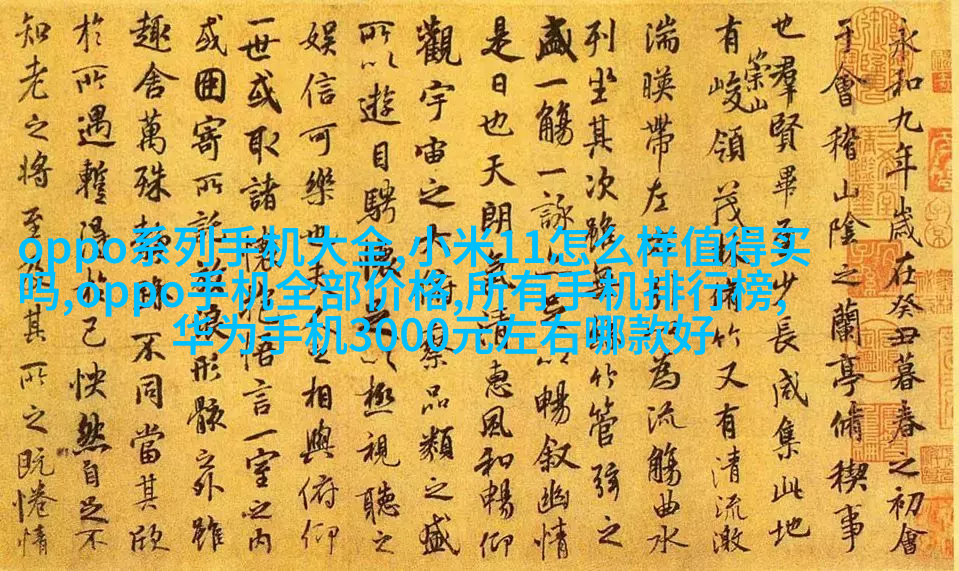 oppo系列手机大全,小米11怎么样值得买
吗,oppo手机全部价格,所有手机排行榜,
华为手机3000元左右哪款好
永和九年歲在癸丑暮春之初會
于會稽山陰之蘭亭脩稧事
也羣賢畢至少長咸集此地
有崇山峻領茂林脩竹又有清流激
湍暎帶左右引以為流觴曲水
列坐其次雖無絲竹管弦之
盛一觴一詠亦足以暢叙幽情
是日也天朗氣清惠風和暢仰
觀宇宙之大俯察品類之盛
所以遊目騁懷足以極視聽之
娛信可樂也夫人之相與俯仰
一世或取諸懷抱悟言一室之內
或因寄所託放浪形骸之外雖
趣舍萬殊靜躁不同當其欣
於所遇暫得於己怏然自足不
知老之將至及其所之既惓情